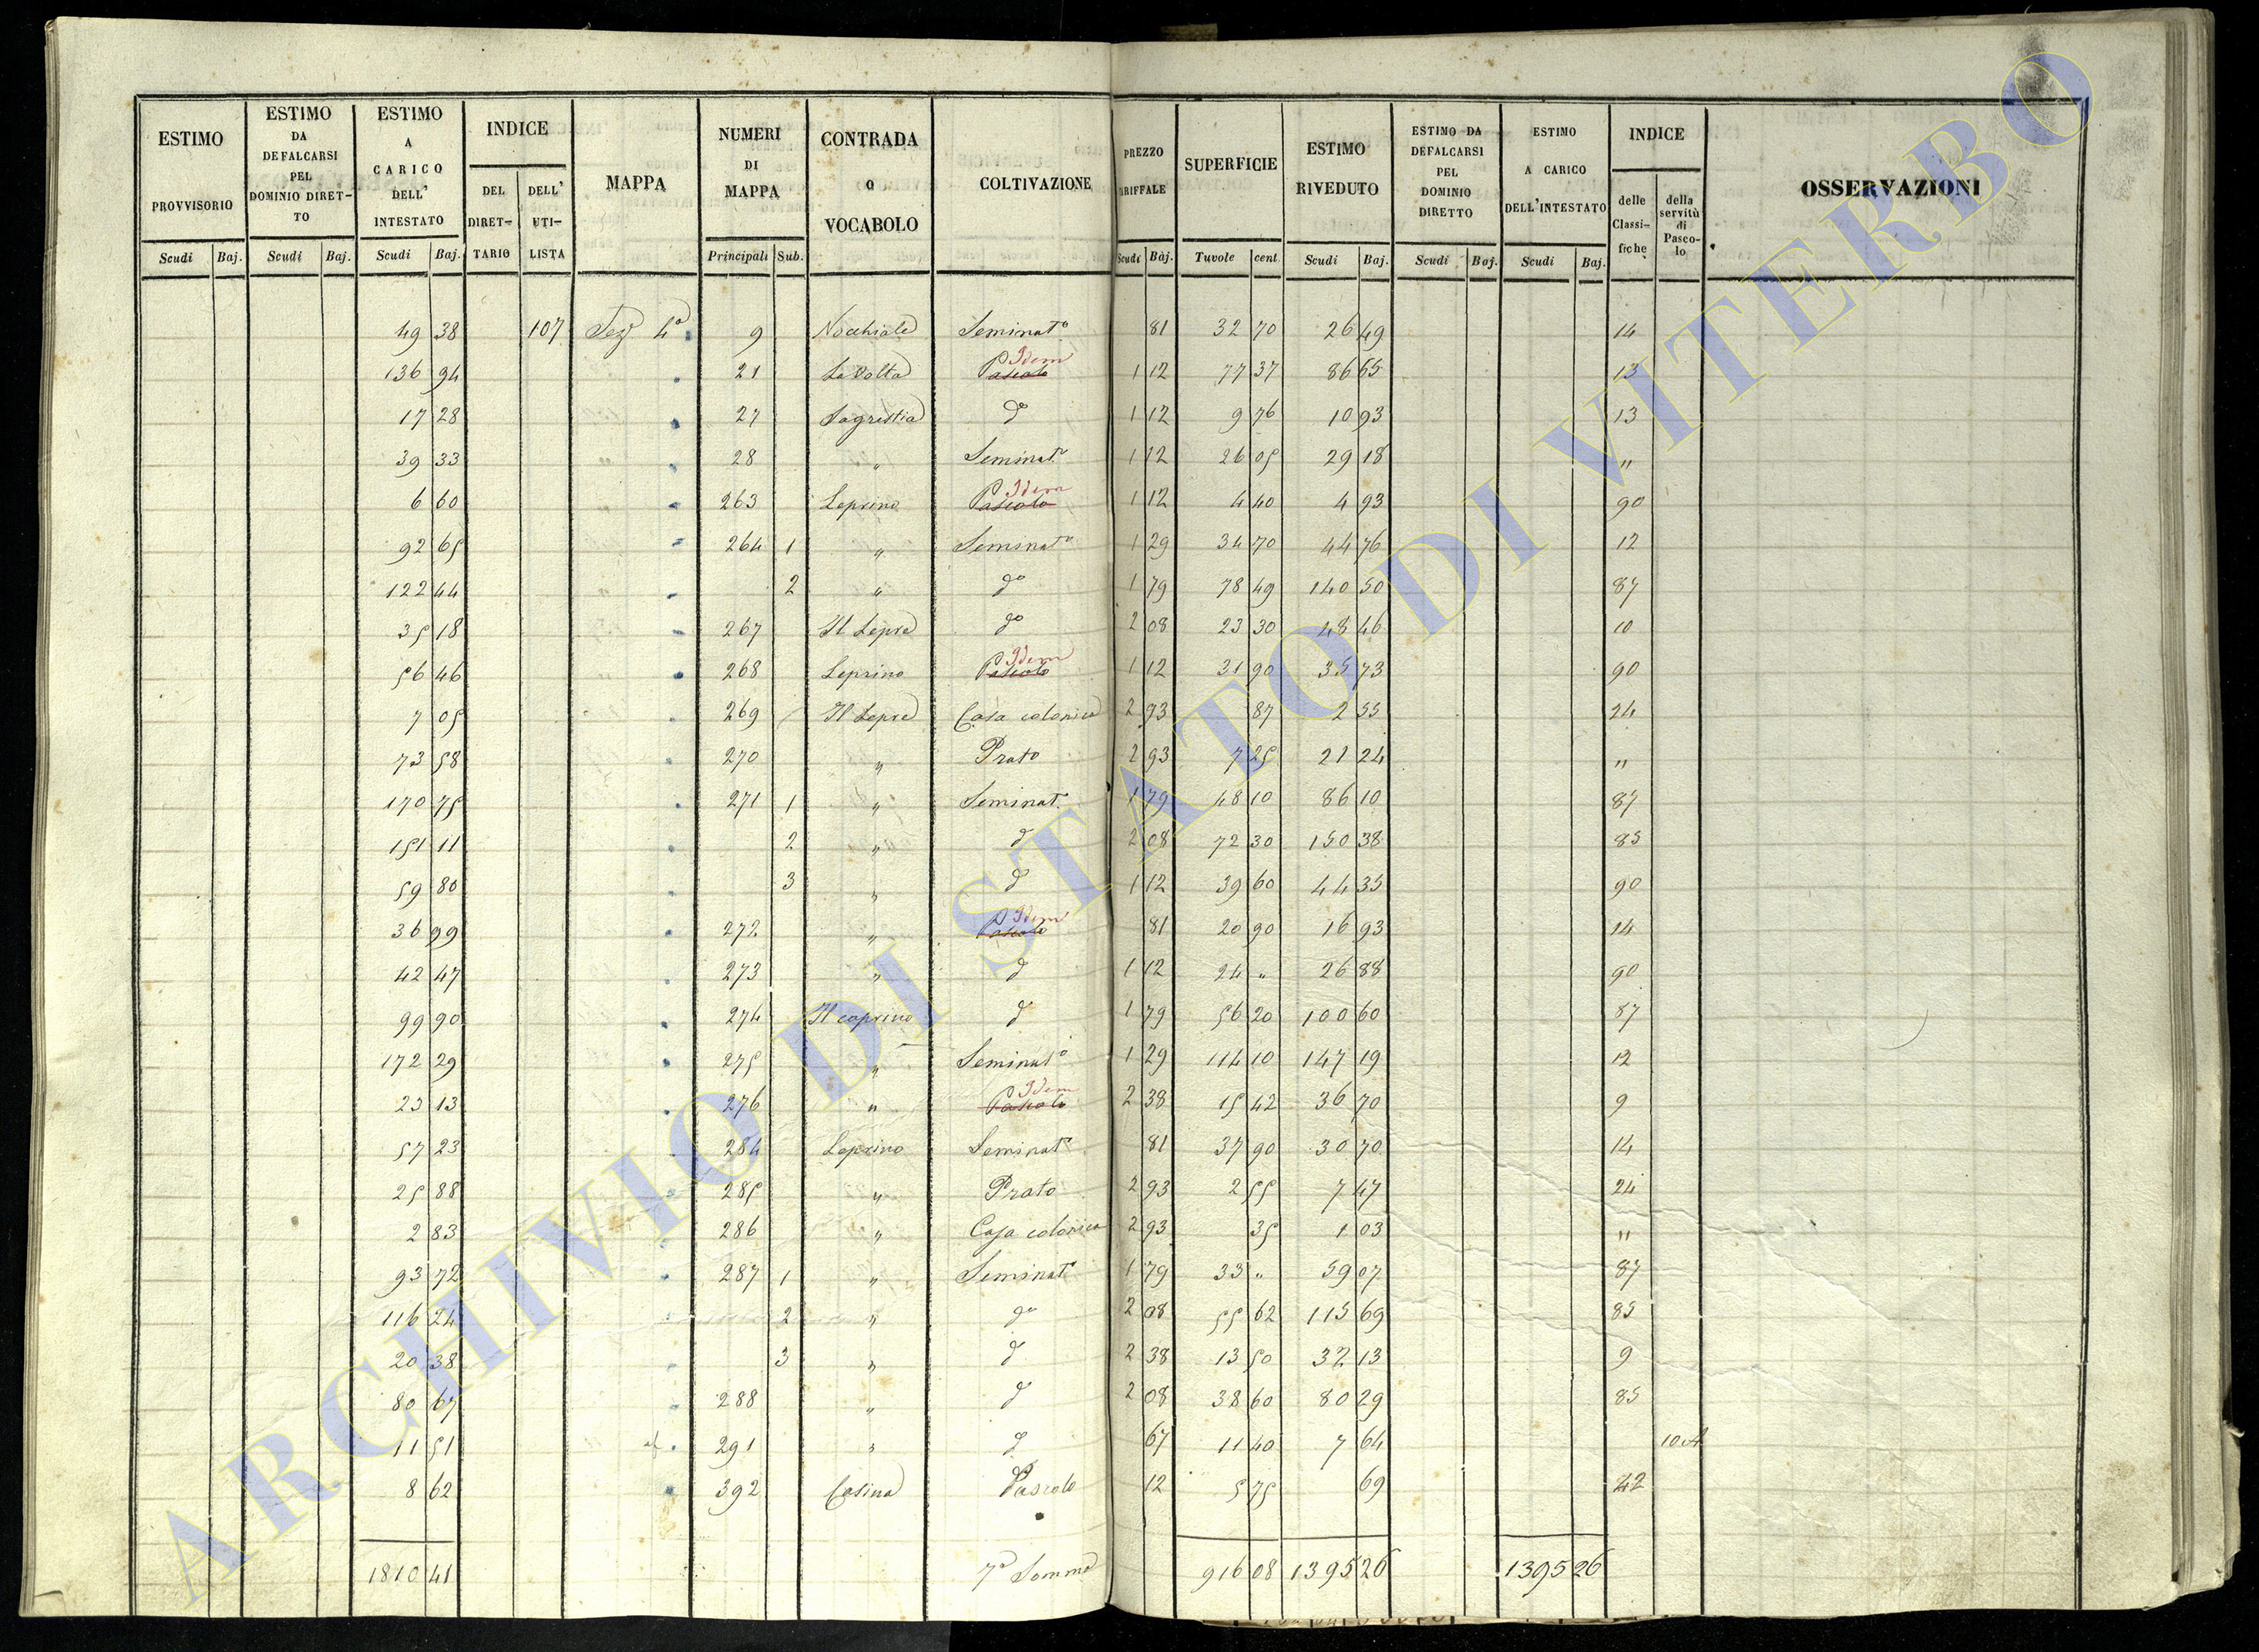 ESTIMO PROVVISORIO | ESTIMO DA DEFALCARSI PEL DOMINIO DIRET-TO | ESTIMO A CARICO DELL' INTESTATO | INDICE DEL DIRET-TARIO | DELL' UTI-LISTA | MAPPA | NUMERI DI MAPPA | CONTRADA O VOCABOLO | COLTIVAZIONE | PREZZO RIFFALE | SUPERFICIE | ESTIMO RIVEDUTO | ESTIMO DA DEFALCARSI PEL DOMINIO DIRETTO | ESTIMO A CARICO DELL'INTESTATO | INDICE delle Classi-fiche | della servitù di Pasco-lo | OSSERVAZIONI
Scudi Baj. | Scudi Baj. | Scudi Baj. | Principali Sub. | Scudi Baj. | Tuvole cent. | Scudi Baj. | Scudi Baj. | Scudi Baj.
49 38 107 Sez. 4a 9 Nocchiale Seminato 81 32 70 26 49 14
136 94 21 La Volta Pascolo Idem 1 12 77 37 86 65 13
17 28 27 Sagrestia do 1 12 9 76 10 93 13
39 33 28 " Seminato 1 12 26 05 29 18 "
6 60 263 Leprino Pascolo Idem 1 12 4 40 4 93 90
92 65 264 1 " Seminato 1 29 34 70 44 76 12
122 44 2 " do 1 79 78 49 140 50 87
35 18 267 Il Lepre do 2 08 23 30 48 46 10
56 46 268 Leprino Pascolo Idem 1 12 31 90 35 73 90
7 05 269 Il Lepre Casa colonica 2 93 87 2 55 24
73 58 270 " Prato 2 93 7 25 21 24 "
170 75 271 1 " Seminat. 1 79 48 10 86 10 87
151 11 2 " d 2 08 72 30 150 38 85
59 80 3 " d 1 12 39 60 44 35 90
36 99 272 " Pascolo Idem 81 20 90 16 93 14
42 47 273 " d 1 12 24 " 26 88 90
99 90 274 Il caprino d 1 79 56 20 100 60 87
172 29 275 " Seminato 1 29 114 10 147 19 12
23 13 276 " Pascolo Idem 2 38 15 42 36 70 9
57 23 284 Leprino Seminato 81 37 90 30 70 14
25 88 285 " Prato 2 93 2 55 7 47 24
2 83 286 " Casa colonica 2 93 35 1 03 "
93 72 287 1 " Seminato 1 79 33 " 59 07 87
116 24 2 " do 2 08 55 62 115 69 85
20 38 3 " d 2 38 13 50 32 13 9
80 67 288 " d 2 08 38 60 80 29 85
11 51 291 " d 67 11 40 7 64 10 A
8 62 392 Casina Pascolo 12 5 75 69 42
1810 41 7a Somma 916 08 1395 26 1395 26
ARCHIVIO DI STATO DI VITERBO